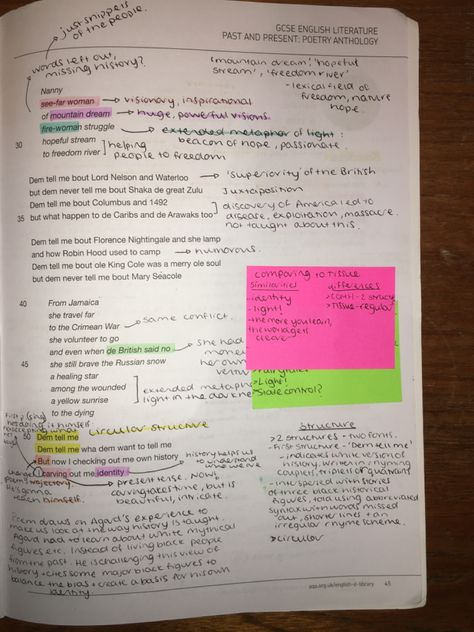 just snippets
of the people.
GCSE ENGLISH LITERATURE
PAST AND PRESENT: POETRY ANTHOLOGY
words left out,
missing history?
'mountain dream', 'hopeful
stream', 'freedom river'
- lexical field of
freedom, nature
hope.
Nanny
see-far woman → visionary, inspirational
of mountain dream → huge, powerful visions.
fire-woman struggle → extended metaphor of light:
beacon of hope, passionate.
30 hopeful stream
to freedom river
helping
people to freedom
Dem tell me bout Lord Nelson and Waterloo → 'superiority' of the British
but dem never tell me bout Shaka de great Zulu Juxtaposition
Dem tell me bout Columbus and 1492
35 but what happen to de Caribs and de Arawaks too
discovery of America led to
disease, exploitation, massacre.
not taught about this.
Dem tell me bout Florence Nightingale and she lamp
and how Robin Hood used to camp → humorous.
Dem tell me bout ole King Cole was a merry ole soul
but dem never tell me bout Mary Seacole
comparing to Tissue
similarities
- identity
- light!
- the more you learn,
the world gets
clearer
differences
> Tissue - regular
> Light!
State control?
40 From Jamaica
she travel far
to the Crimean War → same conflict.
she volunteer to go
and even when de British said no → she had
money
her own
45 she still brave the Russian snow
a healing star
among the wounded
a yellow sunrise
to the dying
extended metaphor
light in the dark
circular structure
50 Dem tell me
Dem tell me wha dem want to tell me
But now I checking out me own history
I carving out me identity
history helps us
to understand
who we are
→ present tense. Now,
carving takes time, but is
beautiful, intricate.
himself.
Poem draws on Agard's experience to
make us look at the way history is taught.
Agard had to learn about white mythical
figures etc. instead of living black people
from the past. He is challenging this view of
history + cites some major black figures to
balance the bias + create a basis for his own
identity.
Structure
> 2 structures - two fonts.
- First structure - 'Dem tell me'
- indicates white version of
history, written in rhyming
couplets, triplets or quatrains
- interspersed with stories
of three black historical
figures, told using abbreviated
syntax with words missed
out, shorter lines + an
irregular rhyme scheme.
> circular
aqa.org.uk/english-e-library
45